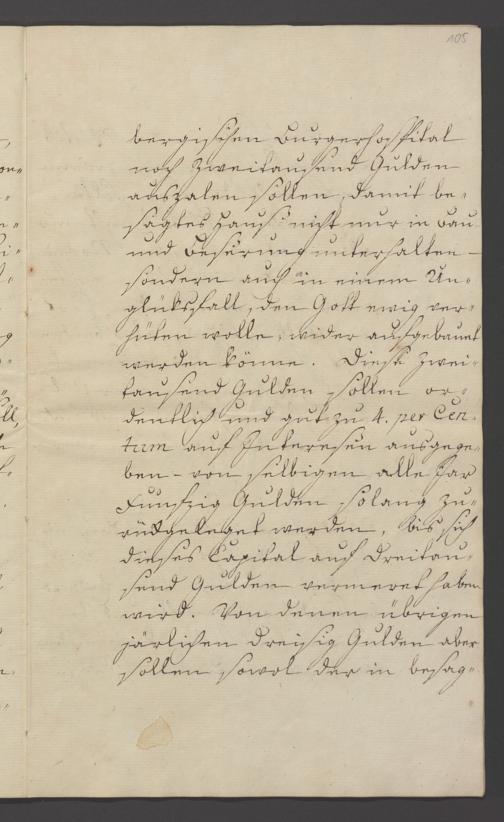 105
bergischen Burgerhospital
noch Zweitausend Gulden
auszalen sollen, damit be-
sagtes Haus nicht nur in Bau
und Beserung unterhalten -
sondern auch in einem Un-
glüksfall, den Gott ewig ver-
hüten wolle, wider aufgebauet
werden könne. Diese Zwei-
tausend Gulden sollen or-
dentlich und gut zu 4. per Cen-
tum auf Interesen ausgege-
ben - von selbigen alle Jar
Funfzig Gulden solang zu-
rükgeleget werden, bis sich
dieses Capital auf Dreitau-
send Gulden vermeret haben
wird. Von denen übrigen
järlichen Dreisig Gulden aber
sollen sowol der in besag-